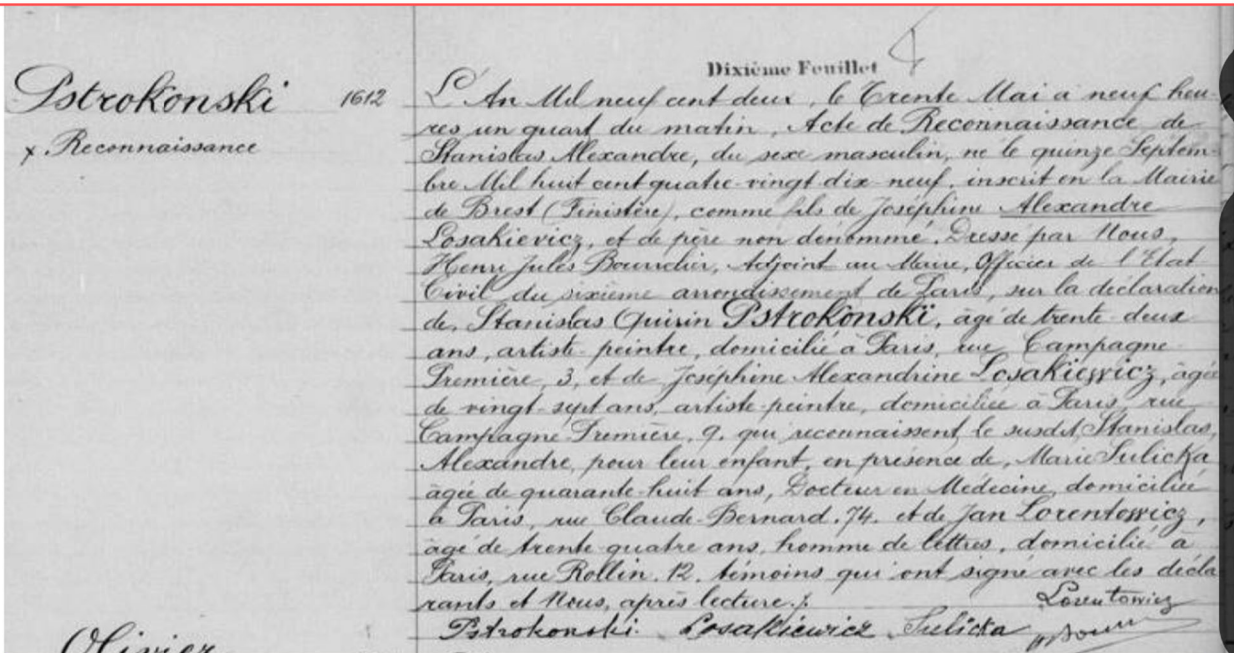 Dixième Feuillet
Pstrokonski 1612
x Reconnaissance
L'An Mil neuf cent deux, le Trente Mai à neuf heu-
res un quart du matin, Acte de Reconnaissance de
Stanislas Alexandre, du sexe masculin, né le quinze Septem-
bre Mil huit cent quatre-vingt dix-neuf, inscrit en la Mairie
de Brest (Finistère), comme fils de Joséphine Alexandre
Losakievicz, et de père non dénommé. Dressé par Nous,
Henri Jules Bourdier, Adjoint au Maire, Officier de l'Etat
Civil du sixième arrondissement de Paris, sur la déclaration
de, Stanislas Quirin Pstrokonski, âgé de trente-deux
ans, artiste-peintre, domicilié à Paris, rue Campagne-
Première, 3, et de Joséphine Alexandrine Losakiewicz, âgée
de vingt-sept ans, artiste-peintre, domiciliée à Paris, rue
Campagne-Première, 9. qui reconnaissent le susdit, Stanislas,
Alexandre, pour leur enfant, en présence de, Marie Sulicka
âgée de quarante-huit ans, Docteur en Médecine, domiciliée
à Paris, rue Claude-Bernard. 74. et de Jan Lorentowicz,
âgé de trente-quatre ans, homme de lettres, domicilié à
Paris, rue Rollin. 12. témoins qui ont signé avec les décla-
rants et Nous, après lecture./.
Lorentowicz
Pstrokonski. Losakiewicz Sulicka
Olivier